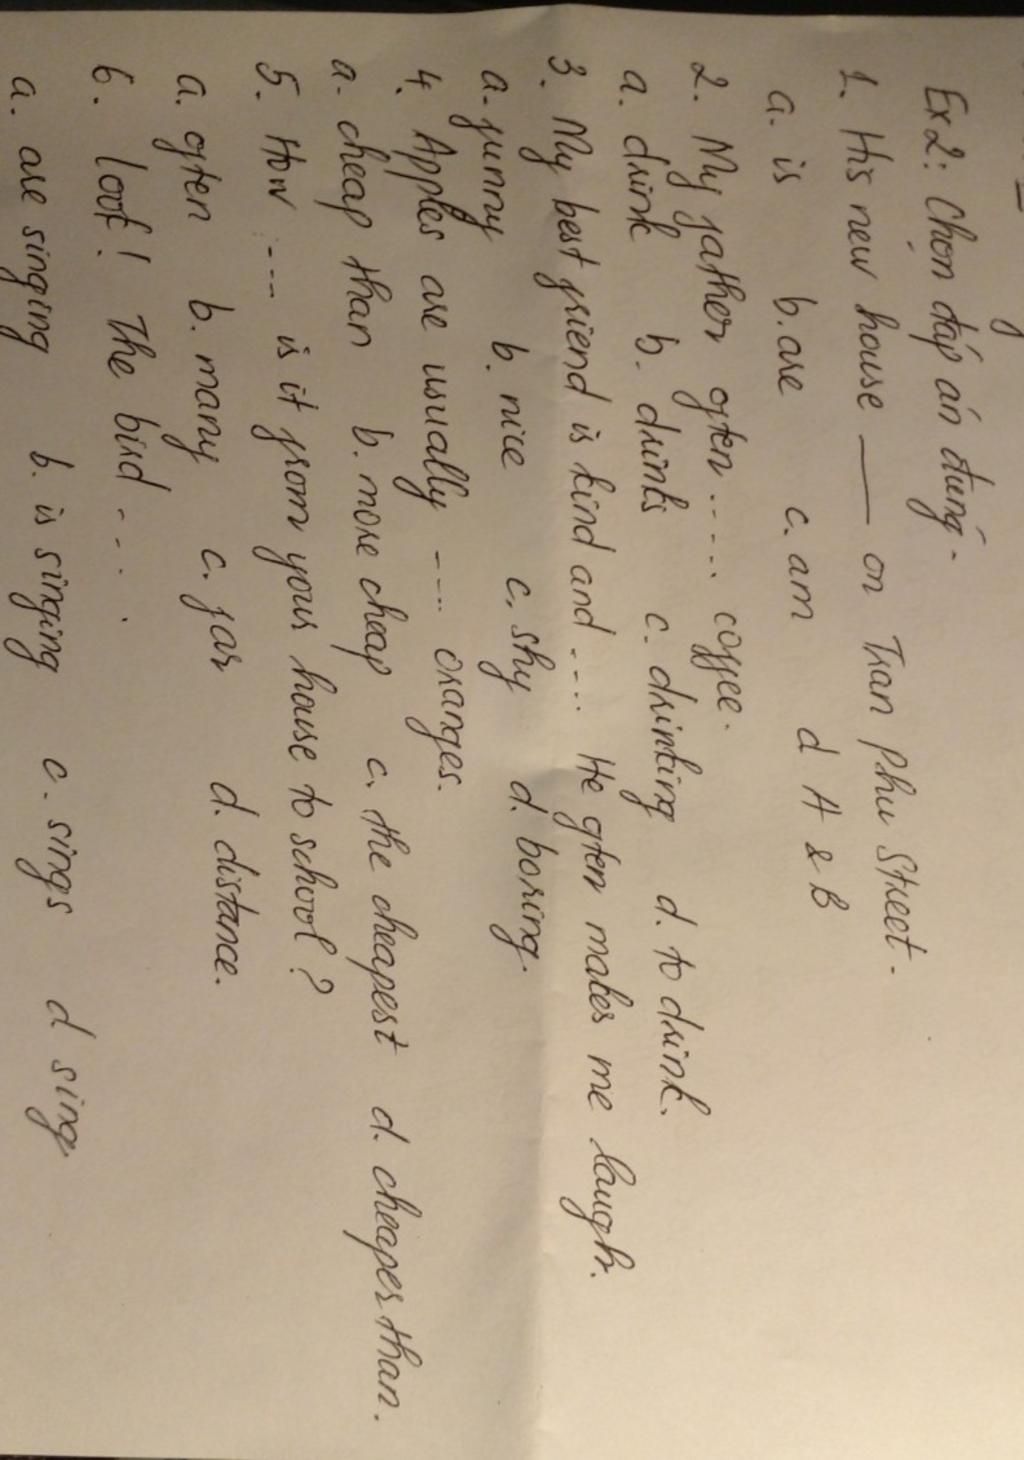 Ex2: Chọn đáp án đúng.
1. His new house ____ on Tran Phu Street.
a. is b. are c. am d A & B
2. My father often ..... coffee.
a. drink b. drinks c. drinking d. to drink.
3. My best friend is kind and .... He often makes me laugh.
a. funny b. nice c. shy d. boring.
4. Apples are usually ---- oranges.
a. cheap than b. more cheap c. the cheapest d. cheaper than.
5. How ---- is it from your house to school?
a. often b. many c. far d. distance.
6. look! The bird ----.
a. are singing b. is singing c. sings d sing